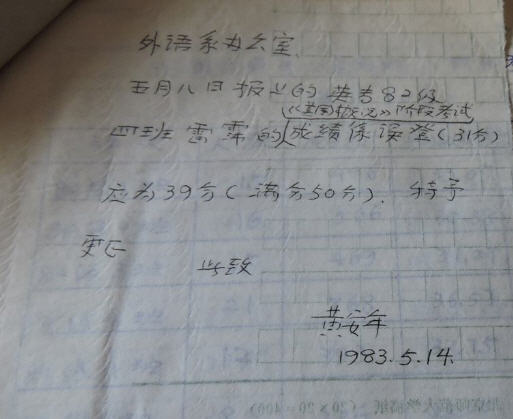 外语系办公室.
五月八日报上的英专82级
《英国概况》阶段考试
四班雷霖的成绩係误登(31分)
应为39分(满分50分). 特予
更正
此致
黄安年
1983.5.14.
(20×20=400)